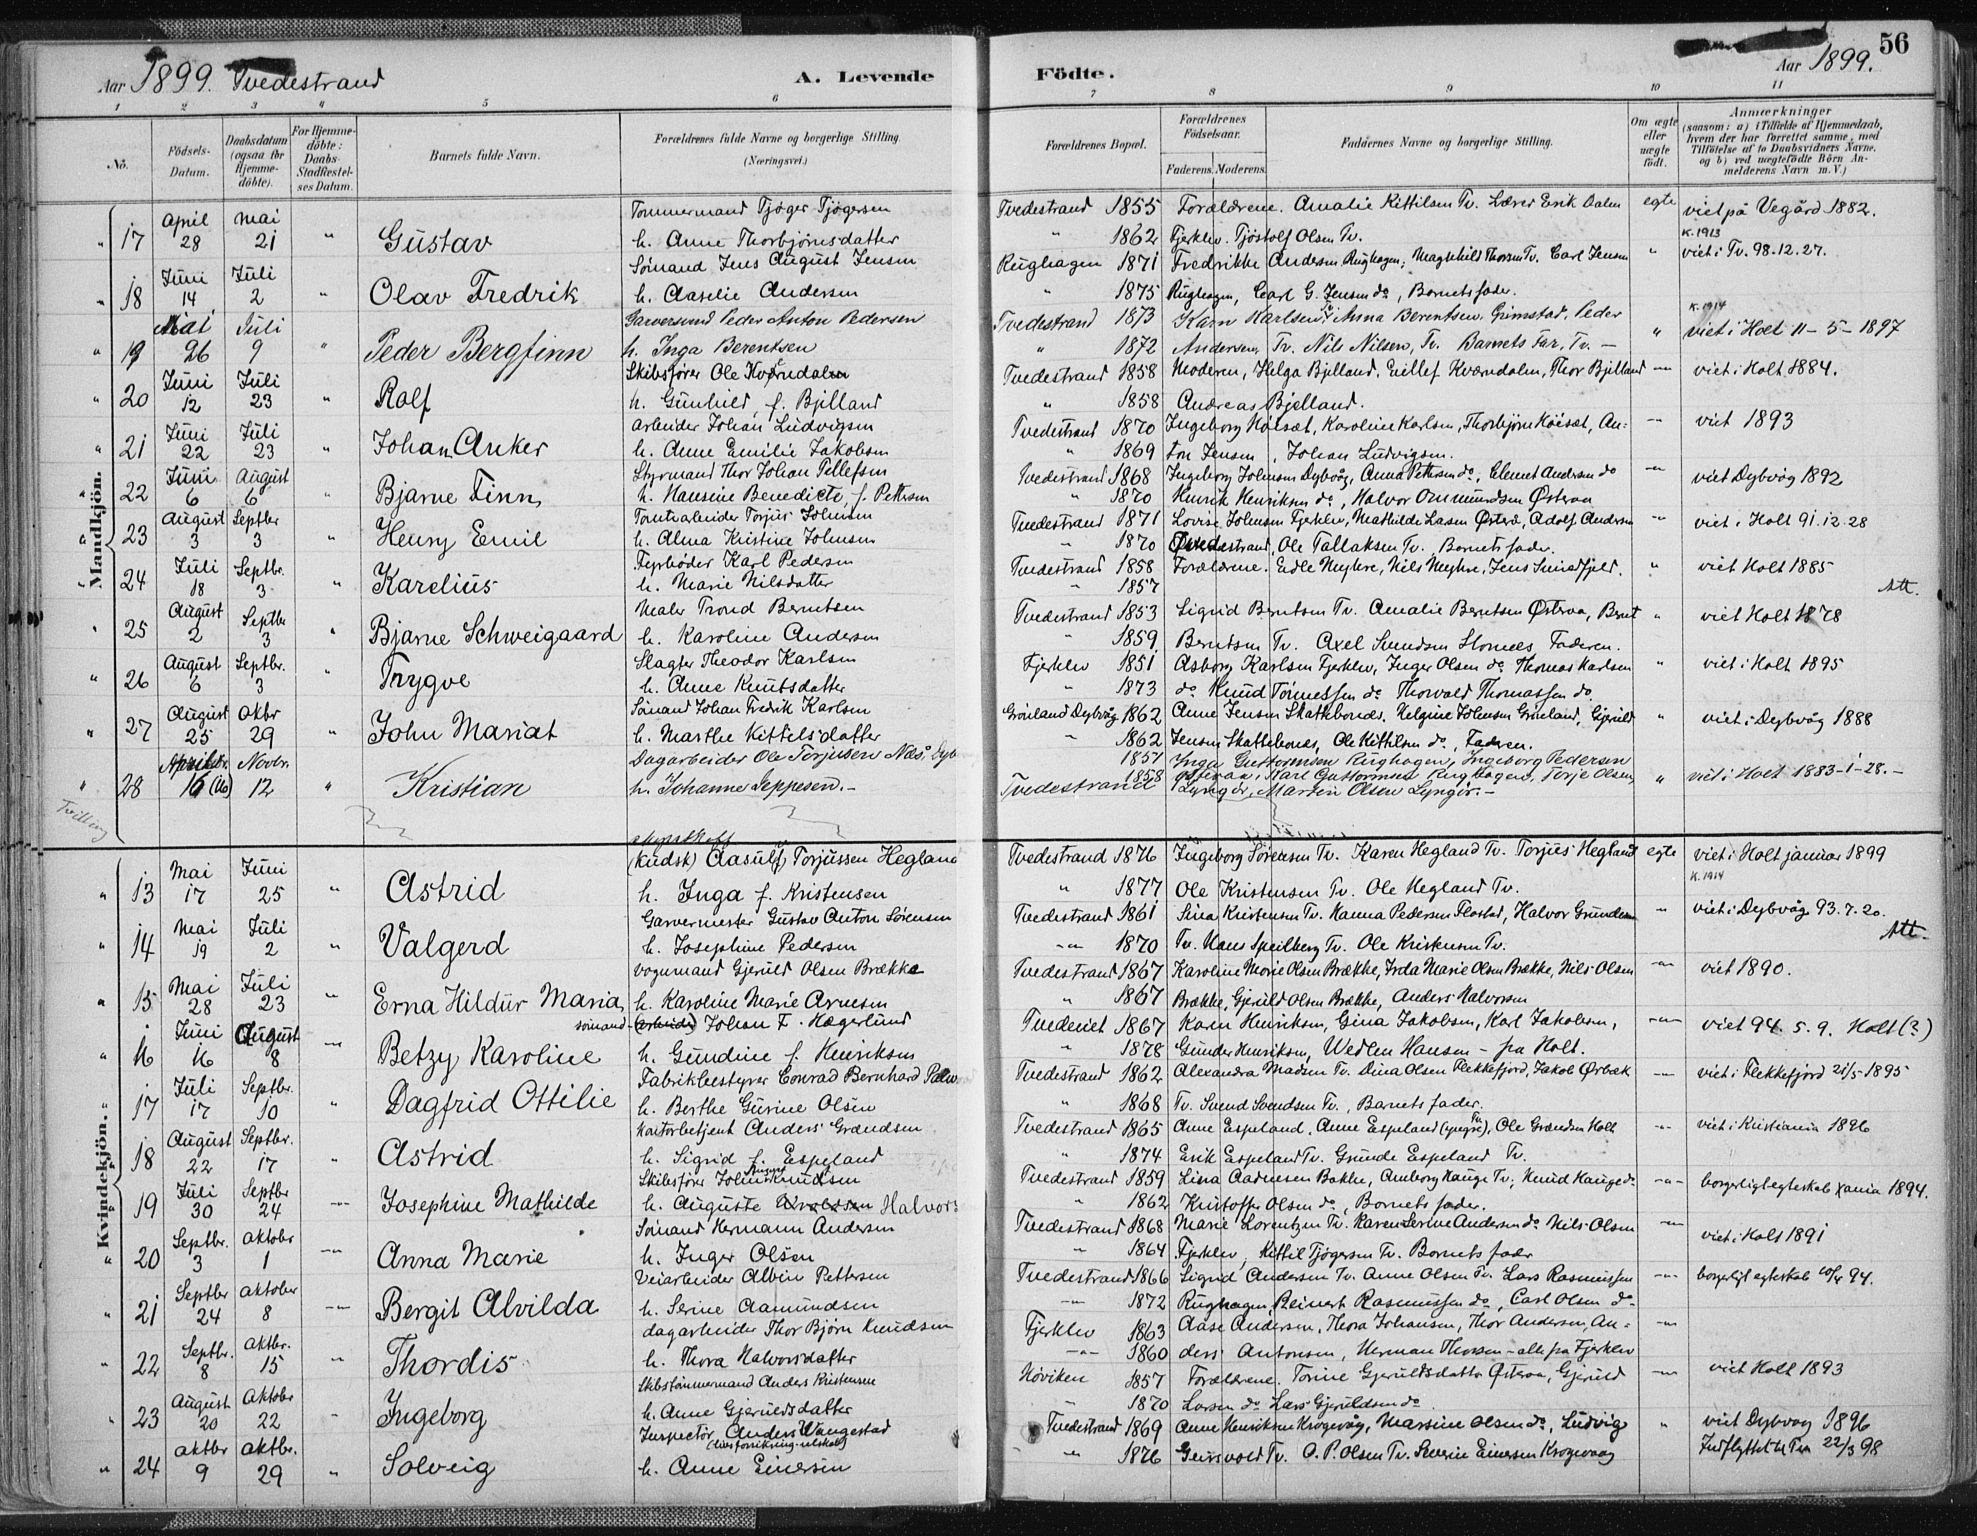 Aar 1899. Tvedestrand
A. Levende Födte.
Aar 1899.
56
1 2 3 4 5 6 7 8 9 10 11
No. Födsels-Datum. Daabsdatum (ogsaa for Hjemmedöbte). For Hjemmedöbte: Daabs-Stadfæstelses Datum. Barnets fulde Navn. Forældrenes fulde Navne og borgerlige Stilling. (Næringsvei.) Forældrenes Bopæl. Forældrenes Födselsaar. Faderens. Moderens. Faddernes Navne og borgerlige Stilling. Om ægte eller uægte födt. Anmærkninger (saasom: a) i Tilfælde af Hjemmedaab, hvem der har forrettet samme, med Tilföielse af to Daabsvidners Navne, og b) ved uægtefödte Börn Anmelderens Navn m. V.)
Mandkjön.
17 April 28 Mai 21 " Gustav Tømmermand Tjøger Tjøgersen Tvedestrand 1855 Forældrene. Amalie Kittilsen Tv. Lærer Erik Dalen egte viet på Vegård 1882.
h. Anne Thorbjørnsdatter " 1862 Fjerklev. Tjøstolf Olsen Tv. K. 1913
18 Juni 14 Juli 2 " Olav Fredrik Sömand Jens August Jensen Rughagen 1871 Fredrikke Andersen Rughagen, Magnhild Thorsen Tv. Carl Jensen " viet i Tv. 98.12.27.
h. Aaselie Andersen " 1875 Rughagen, Carl G. Jensen do, Barnets fader.
19 Mai 26 Juli 9 " Peder Bergfinn Garversvend Peder Anton Pedersen Tvedestrand 1873 Karn Karlsen Tv. Anna Berentsen, Grimstad, Peder " K. 1914 viet i Holt 11-5-1897
h. Inga Berentsen " 1872 Andersen, Tv. Nils Nilsen, Tv. Barnets Far, Tv. —
20 Juni 12 Juli 23 " Rolf Skibsfører Ole Kværndalen Tvedestrand 1858 Moderen, Helga Bjelland, Eillef Kværndalen, Thor Bjelland — viet i Holt 1884.
h. Gunhild f. Bjelland " 1858 Andreas Bjelland.
21 Juni 22 Juli 23 " Johan Anker Arbeider Johan Ludvigsen Tvedestrand 1870 Ingeborg Höisæt, Karoline Karlsen, Thorbjørn Höisæt, An= — viet 1893
h. Anne Emilie Jakobsen " 1869 ton Jensen, Johan Ludvigsen.
22 Juni 6 August 6 " Bjarne Finn Styrmand Thor Johan Tellefsen Tvedestrand 1868 Ingeborg Johnsen Dybvåg, Anna Pettersen do, Clemet Andersen do — viet Dybvåg 1892
h. Hansine Benedicte f. Pettersen " 1870 Henrik Henriksen do, Halvor Ommundsen Østeraa
23 August 3 Septbr 3 " Henry Emil Tomtearbeider Torjus Johnsen Tvedestrand 1871 Lovise Johnsen Fjerklev, Mathilde Larsen Østerå, Adolf Andersen — viet i Holt 91.12.28
h. Alma Kristine Johnsen " 1870 Tvedestrand, Ole Tallaksen Tv., Barnets fader.
24 Juli 18 Septbr. 3 " Karelius Fyrbøder Karl Pedersen Tvedestrand 1858 Forældrene. Edle Myhre, Nils Myhre, Jens Smedfjeld. " viet Holt 1885
h. Marie Nilsdatter " 1857 Att.
25 August 2 Septbr 3 " Bjarne Schweigaard Maler Trond Berntsen Tvedestrand 1853 Sigrid Berntsen Tv. Amalie Berntsen Østeraa, Bernt " viet Holt 1878
h. Karoline Andersen " 1859. Berntsen Tv. Axel Svendsen Stornes. Faderen.
26 August 6 Septbr. 3 " Trygve Slagter Theodor Karlsen Fjerklev 1851 Asborg Karlsen Fjerklev, Inger Olsen do Thomas Karlsen " viet i Holt 1895
h. Anne Knutsdatter " 1873 do Knud Tönnessen do Thorvald Thomassen do.
27 August 25 Oktbr 29 " John Mariat Sömand Johan Fredrik Karlsen Grönland Dybvåg 1862 Anne Jensen Skattebonæs, Helgine Johnsen Grönland, Gjeruld " viet i Dybvåg 1888
h. Marthe Kittelsdatter " 1862 Jensen Skattebonæs, Ole Kittilsen do, Faderen.
28 16 (16) Novbr. 12 " Kristian Dagarbeider Ole Torjussen Næs, Dyb 1857 Inga Guttormsen Rughagen, Ingeborg Pedersen
h. Johanne Jeppesen.— Tvedestrand 1858 Østeraa, Karl Guttormsen Rughagen, Torje Olsen, Lyngør, Martin Olsen Lyngör.— " viet i Holt 1883-1-28.—
Tvilling
Kvindekjön.
13 Mai 17 Juni 25 " Astrid (Kudsk) Aasulf Torjussen Hegland Tvedestrand 1876 Ingeborg Sörensen Tv. Karen Hegland Tv. Torjus Hegland egte viet i Holt januar 1899
h. Inga f. Kristensen " 1877 Ole Kristensen Tv. Ole Hegland Tv. K. 1914
14 Mai 19 Juli 2 " Valgerd Garvermester Gustav Anton Sörensen Tvedestrand 1861 Sina Kristensen Tv. Hanna Pedersen Flostad, Halvor Gundersen " viet i Dybvåg 93.7.20.
h. Josephine Pedersen — 1870 Tv. Hans Speilberg Tv. Ole Kristensen Tv. Att.
15 Mai 28 Juli 23 — Erna Hildur Maria Vognmand Gjeruld Olsen Brække Tvedestrand 1867 Karoline Marie Olsen Brække, Inda Marie Olsen Brække, Nils Olsen — viet 1890.
h. Karoline Marie Arnesen " 1867 Brække, Gjeruld Olsen Brække, Anders Halvorsen
16 Juni 16 August 8 — Betzy Karoline sömand (Arbeider) Johan F. Hægerlund Tvederiet 1867 Karen Henriksen, Gina Jakobsen, Karl Jakobsen, — viet 94.5.9. Holt (?)
h. Gundine f. Henriksen " 1878 Gunder Henriksen, Wedlen Hansen — fra Holt.
17 Juli 17 Septbr. 10 " Dagfrid Ottilie Fabrikbestyrer Conrad Bernhard Tvedestrand 1862 Alexandra Madsen Tv. Dina Olsen Flekkefjord, Jakob Ørbæk — viet i Flekkefjord 21/5 1895
h. Berthe Gurine Olsen " 1868 Tv. Svend Svendsen Tv., Barnets fader.
18 August 22 Septbr. 17 " Astrid Kontorbetjent Anders Grændsen Tvedestrand 1865 Anne Espeland, Anne Espeland (yngre) Tv, Ole Grændsen Holt — viet i Kristiania 1896
h. Sigrid f. Espeland " 1874 Erik Espeland Tv. Grunde Espeland Tv.
19 Juli 30 Septbr 24 — Josephine Mathilde Skibsfører Johan Knudsen Tvedestrand 1859 Lina Aadnesen Bakke, Amborg Hauge Tv; Knud Hauge do — borgerligt egteskab Xania 1894.
h. Auguste Halvors " 1862 Kristoffer Olsen do, Barnets fader.
20 Septbr. 3 Oktobr 1 — Anna Marie Sömand Hermann Andersen Tvedestrand 1868 Marie Lorentzen Tv. Karen Serine Andersen do Nils Olsen — viet i Holt 1891
h. Inger Olsen " 1864 Fjerklev, Kittil Tjøgersen Tv. Barnets fader
21 Septbr 24 Oktober 8 — Bergit Alvilda Veiarbeider Albin Pettersen Tvedestrand 1866 Sigrid Andersen Tv. Anne Olsen Tv. Lars Rasmussen — borgerligt egteskab 94.
h. Serine Aamundsen — 1872 Rughagen, Beinert Rasmussen do, Carl Olsen do
22 Septbr. 8 Oktbr. 15 — Thordis dagarbeider Thor Bjørn Knudsen Fjerklev 1863 Aase Andersen, Thora Johansen, Thor Andersen, An= —
h. Thora Halvorsdatter — 1860 ders Antonsen, Herman Thorsen — alle fra Fjerklev
23 August 20 Oktober 22 " Ingeborg Skibstömmermand Anders Kristensen Höviken 1857 Forældrene. Torine Gjeruldsdatter Østeraa, Gjeruld — viet Holt 1893
h. Anne Gjeruldsdatter " 1870 Larsen do Lars Gjeruldsen do
24 Oktbr 9 Oktbr. 29 " Solveig Inspectör Anders Wangestad Tvedestrand 1869 Anne Henriksen Krogevåg, Martine Olsen do, Ludvig " viet Dybvåg 1896
(livsforsikring-selskab)
h. Anne Einersen " 1876 Tv. O. P. Olsen Tv. Severin Einersen Krogevaag Indflyttet til Tv. 22/3 98